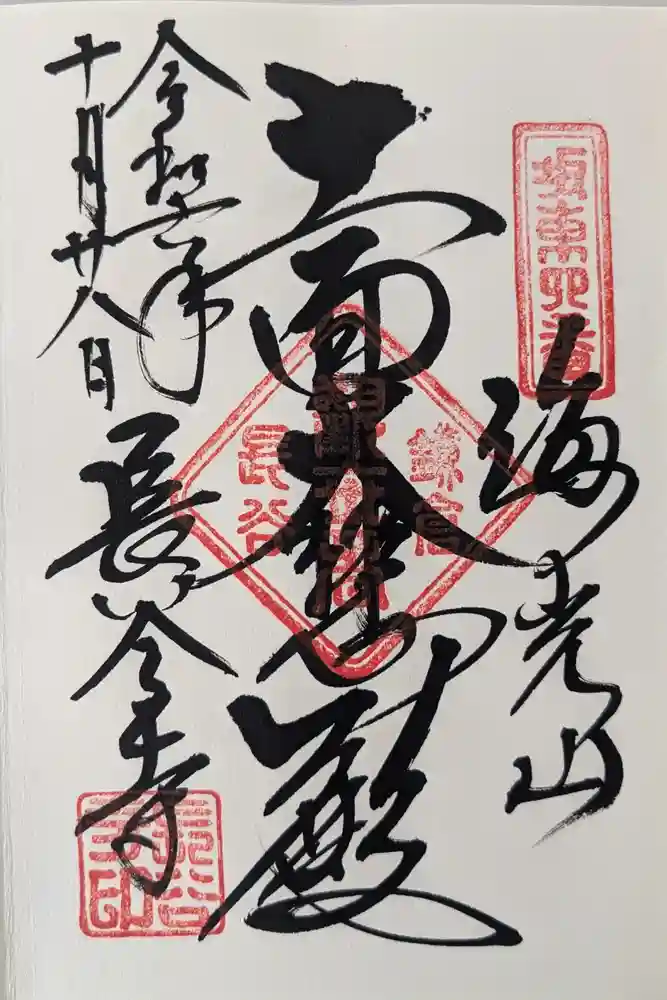 坂東四番
海光山
十一面大悲殿
鎌倉
長谷
令和
年
十月廿八日
長谷寺
長谷寺印